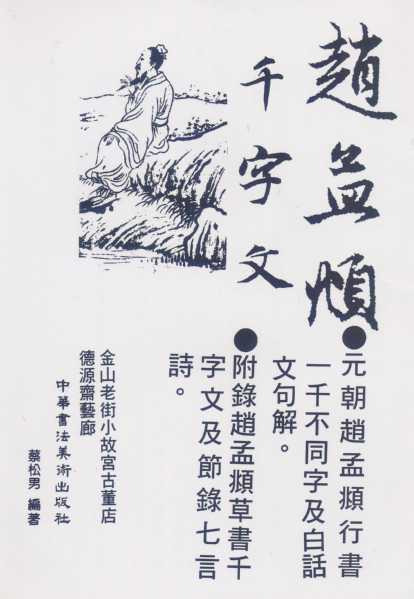 趙孟頫
千字文
●元朝趙孟頫行書
一千不同字及白話
文句解。
●附錄趙孟頫草書千
字文及節錄七言
詩。
金山老街小故宮古董店
德源齋藝廊
中華書法美術出版社
蔡松男 編著